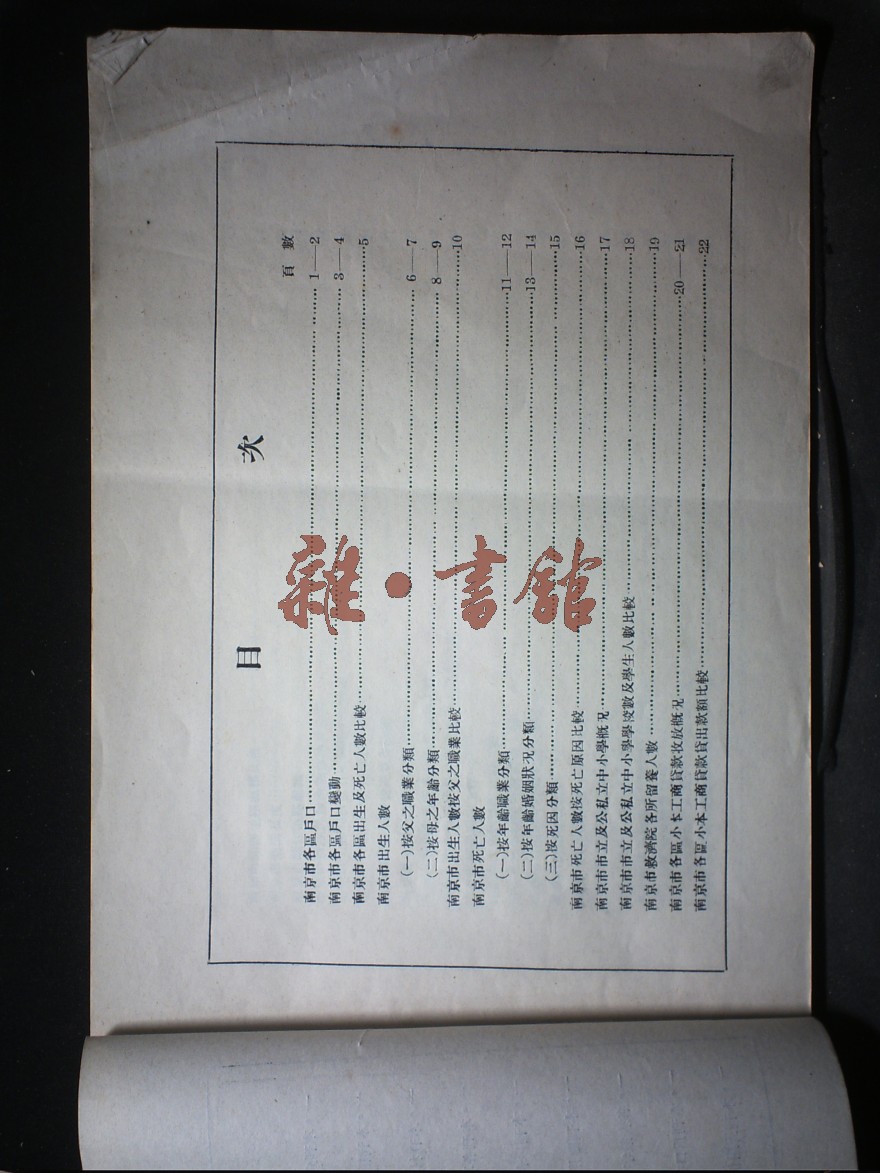 目 次
頁 數
南京市各區戶口……1——2
南京市各區戶口變動……3——4
南京市各區出生及死亡人數比較……5
南京市出生人數
(一)按父之職業分類……6——7
(二)按母之年齡分類……8——9
南京市出生人數按父之職業比較……10
南京市死亡人數
(一)按年齡職業分類……11——12
(二)按年齡婚姻狀况分類……13——14
(三)按死因分類……15
南京市死亡人數按死亡原因比較……16
南京市市立及公私立中小學概况……17
南京市市立及公私立中小學學校數及學生人數比較……18
南京市救濟院各所留養人數……19
南京市各區小本工商貸款收放概况……20——21
南京市各區小本工商貸款貸出款額比較……22
雜·書館